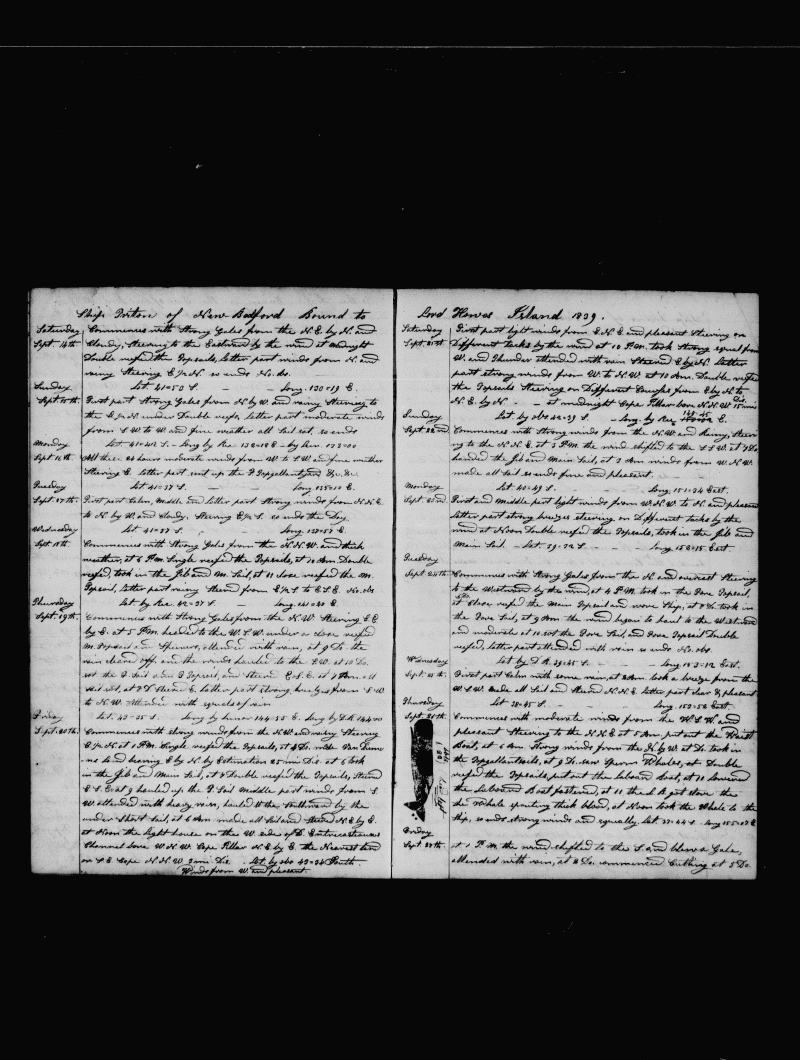 Ship Triton of New Bedford Bound to
Saturday Commences with Strong Gales from the N.E. by N. and
Sept. 14th Cloudy, Steering to the Eastward by the wind at Midnight
Double reefed the Topsails, latter part winds from N. and
rainy Steering E so ends
Sunday Lat 41=53 S. Long 130=19 E.
Sept. 15th First part Strong Gales from N by W and rainy Steering to
the under Double reefs, latter part moderate winds
from S W to W and fine weather all Sail set, so ends
Monday Lat. 41=42 S. Long by
Sept. 16th All these 24 hours moderate winds from W to S.W. and fine weather
Steering E. latter part sent up the
Tuesday Lat 41=37 S. Long 135=00 E.
Sept. 17th First part Calm, Middle and latter part Strong winds from N.N.E.
to N by W. and cloudy. Steering so ends the Day
Wednesday Lat 41=37 S. Long. 137=57 E.
Sept. 18th Commences with Strong Gales from the N.N.W. and thick
weather, at 6 P.M. Single reefed the Topsails, at 10 A.M. Double
reefed, took in the Jib and M. Sail, at 11 close reefed the M.
Topsail, latter part rainy Steered from to E.S.E.
Thursday Lat by 42=37 S. Long. 141=40 E.
Sept. 19th. Commences with Strong Gales from the N.W. Steering S E
by E. at 5 P.M. headed to the W.S.W. under a close reefed
M. Topsail and Spencer, attended with rain, at 9 the
rain cleared off and the winds hauled to the S.W. at 10
set the F Sail and F Topsail, and Steered E.S.E. at 7 A.M. all
sail set, at Steered E. latter part strong breezes from S W
to N.W. attended with squalls of rain
Friday Lat. 43=25 S. Long by Lunar 144=35 E. Long by D.R. 144=00
Sept. 20th. Commences with strong winds from the N.W. and rainy Steering
at 1 P.M. Single reefed the Topsails, at 4 made Van Diemen
land bearing E by N by Estimation 25 min Dis. at 6 took
in the Jib and Main Sail, at 7 Double reefed the Topsails, Steered
E.S.E. at 9 hauled up the F Sail Middle part winds from S
W attended with heavy rain, hauled to the Southward by the
under Short Sail, at 6 A.M. made all Sail and Steered N.E. by E.
at Noon the light house on the W. side of D. Entrecasteaux
Channel bore W.N.W. Cape Pillar N.E by E the Nearest land
or S.E. Cape N.N.W. 9 mi Dis. Lat by obs 43=34 South.
Winds from W. and pleasant
Lord Howes Island 1839.
Saturday First part light winds from E.N.E. and pleasant Steering on
Sept. 21st Different tacks by the wind at 10 P.M. took Strong squall from
W. and Thunder attended with rain Steered E by N. latter
part strong winds from W. to N.W. at 10 A.M. Double reefed
the Topsails Steering on Different Courses from E by N to
N.E. by N. at midnight Cape Pillar bore N.N.W. 15 mi Dis
Sunday Lat by obs 42=39 S. Long by E.
Sept. 22nd Commences with strong winds from the N.W. and Rainy, Steering
to the N.N.E. at 3 P.M. the wind shifted to the S.S.W. at 7
handed the Jib and Main Sail, at 2 A.M. winds from W.N.W.
made all Sail so ends fine and pleasant
Monday Lat. 40=49 S. Long 151=24 East.
Sept. 23rd First and Middle part light winds from W.N.W. to N. and pleasant
latter part strong breezes steering on Different tacks by the
wind at Noon Double reefed the Topsails, took in the Jib and
Main Sail. Lat. 39=32 S. Long 152=15 East.
Tuesday
Sept. 24th Commences with Strong Gales from the N. and overcast Steering
to the Westward by the wind, at 4 P.M. took in the Fore Topsail,
at Close reefed the Main Topsail and wore Ship, at 7 took in
the Fore Sail, at 9 A.M. the wind began to haul to the Westward
and moderate at 10 set the Fore Sail, and Fore Topsail Double
reefed, latter part attended with rain so ends No obs.
Wednesday Lat by D.R. 39=45 S. Long 153=12 East.
Sept. 25th First part Calm with some rain, at 8 A.M. took a breeze from the
W.S.W. made all Sail and Steered N.N.E. latter part clear & pleasant
Thursday Lat. 38=45 S. Long. 153=50 East.
Sept. 26th Commences with moderate winds from the W.S.W. and
pleasant Steering to the N.N.E. at 5 A.M. put out the Waist
Boat, at 6 A.M. Strong winds from the N. by W. at took in
the Topgallantsails, at 9 saw Sperm Whales, at Double
reefed the Topsails put out the Larboard Boat, at 10 lowered
the Larboard Boat fastened, at 11 the Boat stove the
the Whale spouting thick blood, at Noon took the Whale to the
Ship, so ends strong winds and squally Lat 37=44 S. Long 155=07 E
Friday
Sept. 27th. at 1 P.M. the wind shifted to the S. and blew a Gale,
attended with rain, at 2 Do. commenced Cutting at 5 Do.